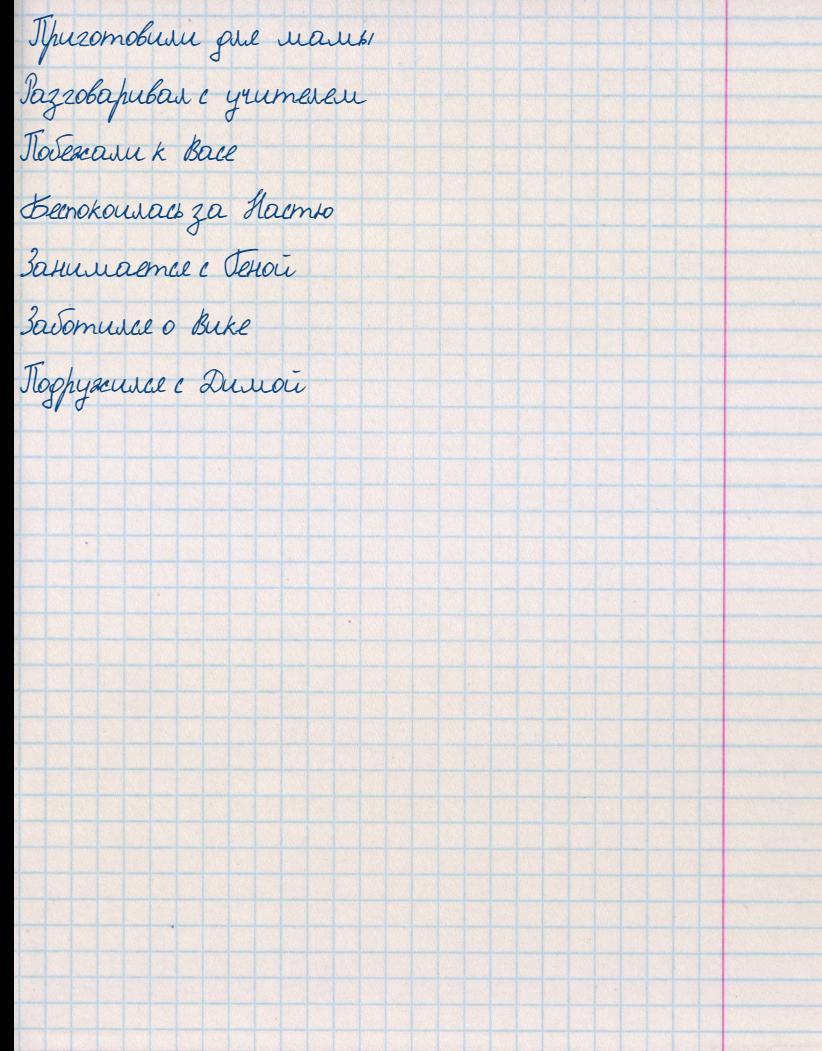 Приготовили для мамы
Разговаривал с учителем
Побежали к Васе
Беспокоилась за Настю
Занимается с Геной
Заботился о Вике
Подружился с Димой